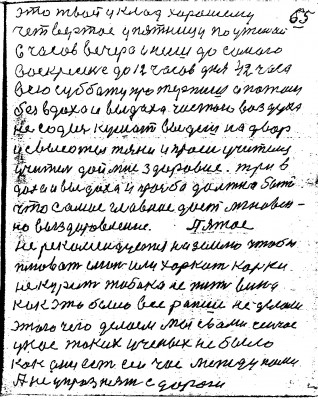 65
это твой уклад хорошему
четвертое у пятницу поужинай
6 часов вечера и неш до самого
воскресние до 12 часов дня 12 часа
всю суботу протерпиш а потом
без вдоха и выдаха частою воздуха
на содня кушат выдеш на двор
и свысоты тяни и проси учителя
учител дай мне здоровие. три в
доха и выдоха и прозба должна быт
что самое главное дает мгнове-
но выздоровление. Пятое
не рекомендуется на землю чтобы
плюват или харкат
не курит табака не пит вина
как это было все ранше не делали
этого чего делаем мы с вами сейчас
у нас таких ученых не было
как они ест сей час между нами
А не упразнят с дороги